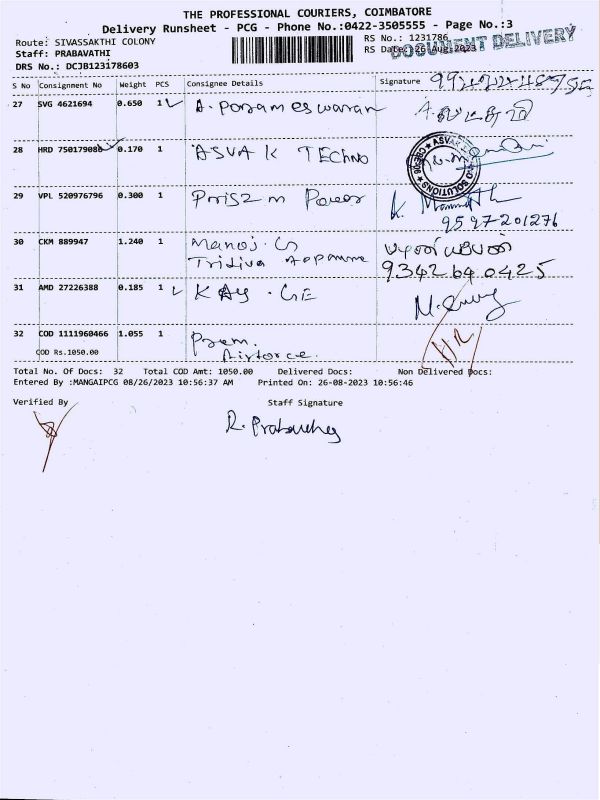 THE PROFESSIONAL COURIERS, COIMBATORE
Delivery Runsheet - PCG - Phone No.:0422-3505555 - Page No.:3
Route: SIVASSAKTHI COLONY
RS No.: 1231786
Staff: PRABAVATHI
RS Date: 26 Aug 2023
DOCUMENT DELIVERY
DRS No.: DCJB123178603
S No Consignment No Weight PCS Consignee Details Signature
27 SVG 4621694 0.650 1 A. Porameswaran
28 HRD 75017908 0.170 1 ASVAK TECHNO
ASVAK
SOLUTIONS
29 VPL 520976796 0.300 1
9597201276
30 CKM 889947 1.240 1 Manoj. G
9342640425
31 AMD 27226388 0.185 1 KAY. GE
32 COD 1111960466 1.055 1 Prem.
COD Rs.1050.00 Airforce.
Total No. Of Docs: 32 Total COD Amt: 1050.00 Delivered Docs: Non Delivered Docs:
Entered By :MANGAIPCG 08/26/2023 10:56:37 AM Printed On: 26-08-2023 10:56:46
Verified By Staff Signature
R. Prabavathy